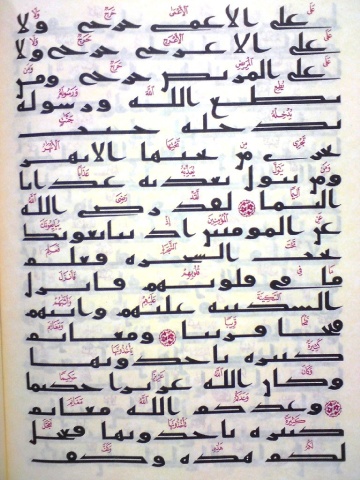 على الاعمى حرج ولا
على الاعرج حرج ولا
على المريض حرج ومن
يطع الله ورسوله
يدخله جنت
تجرى من تحتها الانهر
ومن يتول يعذبه عذابا
اليما لقد رضى الله
عن المومنين اذ يبايعونك
تحت الشجره فعلم
ما فى قلوبهم فانزل
السكينه عليهم واثبهم
فتحا قريبا ومغانم
كثيره ياخذونها
وكان الله عزيزا حكيما
وعدكم الله مغانم
كثيره تاخذونها فعجل
لكم هذه وكف